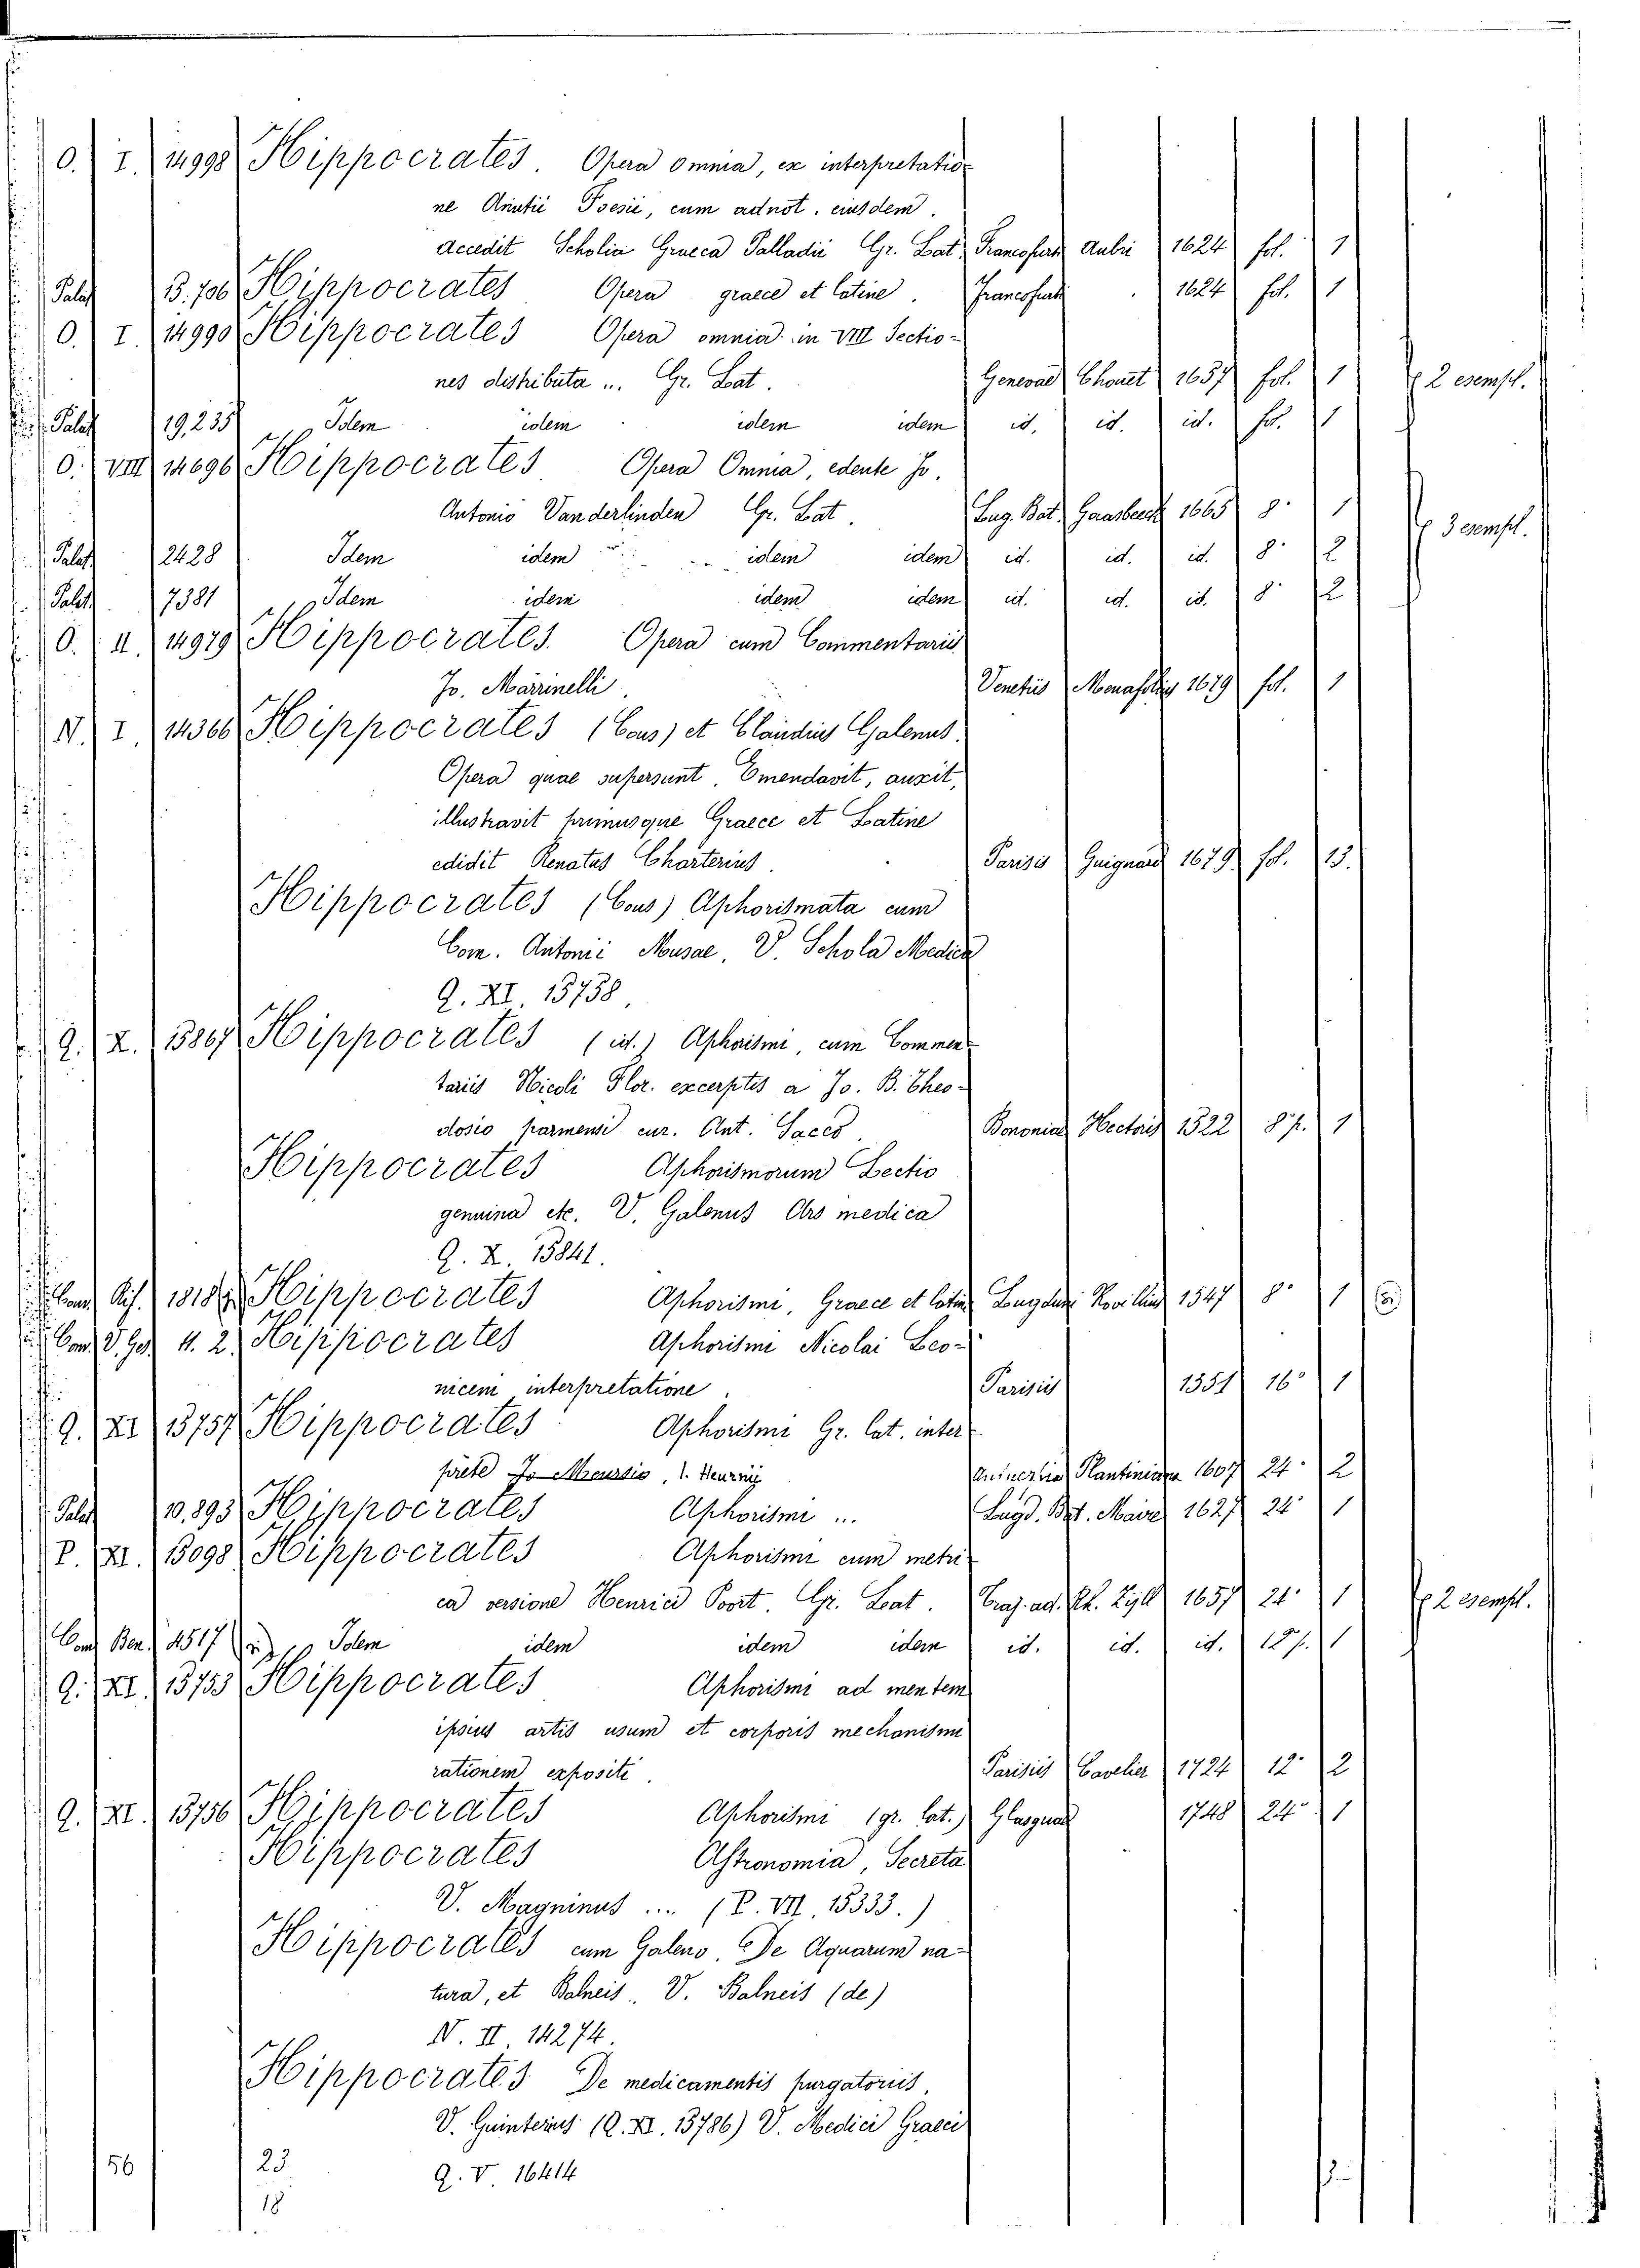 O. I. 14998 Hippocrates. Opera omnia, ex interpretatio-
ne Anutii Foesii, cum adnot. eiusdem.
Accedit Scholia Graeca Palladii Gr. Lat. Francofurti Aubri 1624 fol. 1
Palat 13.706 Hippocrates Opera graece et latine. Francofurti 1624 fol. 1
O. I. 14990 Hippocrates Opera omnia in VIII Sectio-
nes distributa ... Gr. Lat. Genevae Chouet 1657 fol. 1 2 esempl.
Palat 19,235 Idem idem idem idem id. id. id. fol. 1
O. VIII 14696 Hippocrates Opera Omnia, edente Jo.
Antonio Vanderlinden Gr. Lat. Lug. Bat. Gaasbeeck 1665 8° 1 3 esempl.
Palat 2428 Idem idem idem idem id. id. id. 8° 2
Palat 7381 Idem idem idem idem id. id. id. 8° 2
O. II. 14979 Hippocrates. Opera cum Commentariis
Jo. Marinelli. Venetiis 1679 fol. 1
N. I. 14366 Hippocrates (Cous) et Claudius Galenus.
Opera quae supersunt. Emendavit, auxit,
illustravit primusque Graece et Latine
edidit Renatus Charterius. Parisiis Guignard 1679 fol. 13.
Hippocrates (Cous) Aphorismata cum
Com. Antonii Musae, V. Schola Medica
Q. XI. 15758.
Q. X. 15867 Hippocrates (id.) Aphorismi, cum Commen-
tariis Nicoli Flor. excerptis a Jo. B. Theo-
dosio parmensi cur. Ant. Sacco. Bononiae Hectoris 1522 8° p. 1
Hippocrates Aphorismorum Lectio
genuina etc. V. Galenus Ars medica
Q. X. 15841.
Hippocrates Aphorismi, Graece et latine Lugduni Rovillius 1547 8° 1
4. 2. Hippocrates Aphorismi Nicolai Leo-
nicem interpretatione. Parisiis 1551 16° 1
Q. XI 13757 Hippocrates Aphorismi Gr. Lat. inter-
prete Jo Meursio, I. Heurnii Antuerpiae Plantiniana 1607 24° 2
Palat 10,893 Hippocrates Aphorismi ... Lugd. Bat. Maire 1627 24° 1
P. XI. 15098 Hippocrates Aphorismi cum metri-
ca versione Henrici Poort. Gr. Lat. Traj. ad. Rh. Zyll 1657 24° 1 2 esempl.
Com. Ben. 4517 Idem idem idem idem id. id. id. 12° p. 1
Q. XI. 13753 Hippocrates Aphorismi ad mentem
ipsius artis usum et corporis mechanismi
rationem expositi. Parisiis Cavelier 1724 12° 2
Q. XI. 13756 Hippocrates Aphorismi (gr. lat.) Glasguae 1748 24° 1
Hippocrates Astronomia, Secreta
V. Magninus ... (P. VII. 15333.)
Hippocrates cum Galeno. De Aquarum na-
tura, et Balneis. V. Balneis (de)
N. II. 14274.
Hippocrates De medicamentis purgatoriis,
V. Guinterius (Q. XI. 13786) V. Medici Graeci
Q. V. 16414
56 23
18